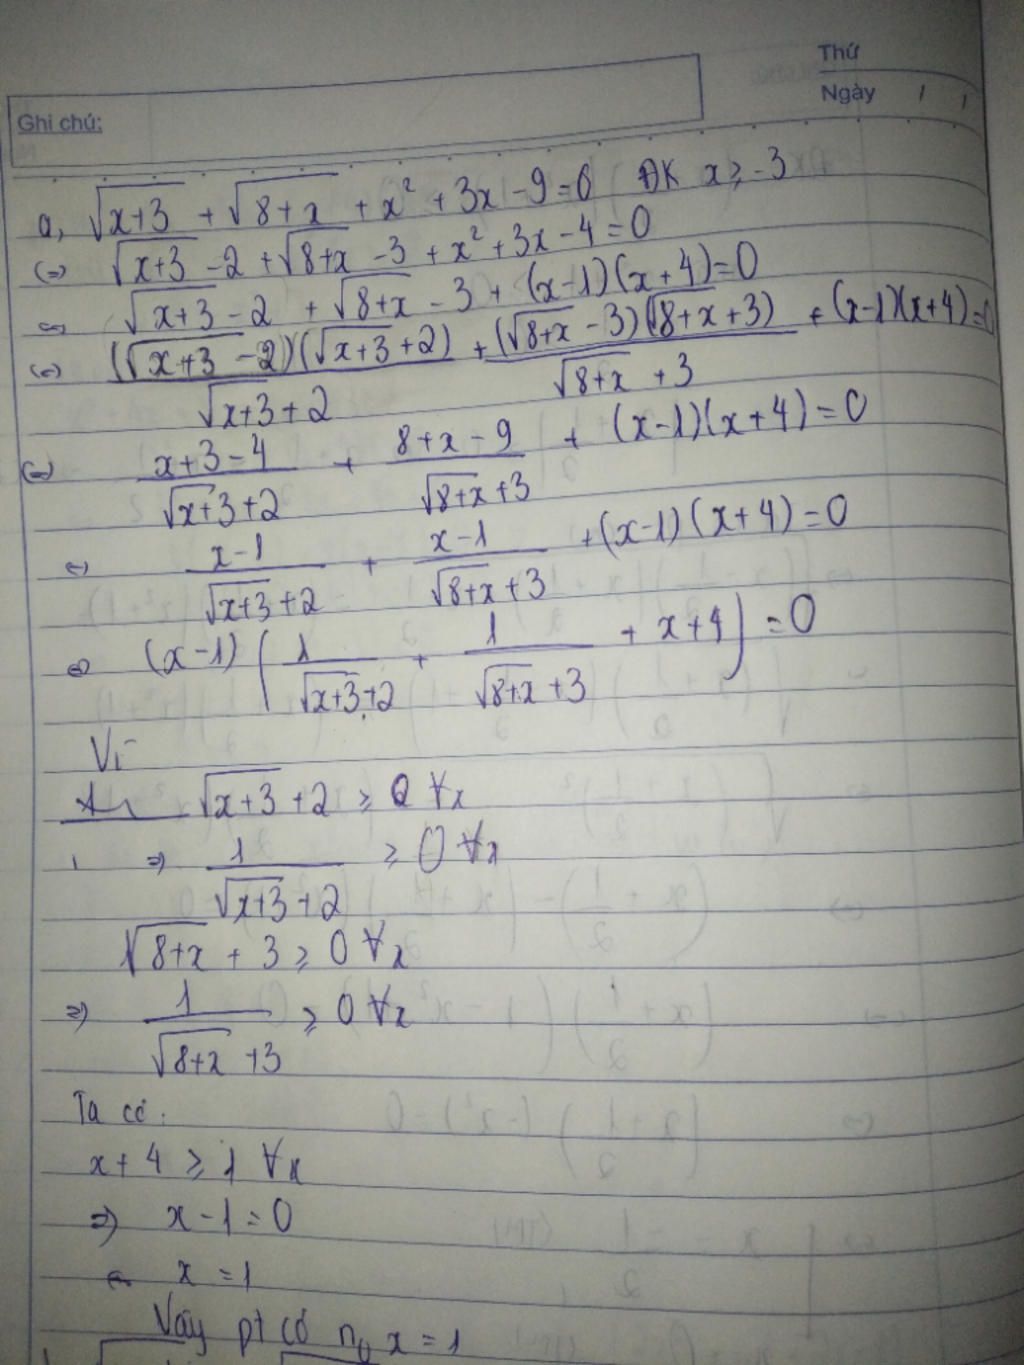 Thứ
Ngày / /
Ghi chú:
a, √(x+3) + √(8+x) + x² + 3x - 9 = 0 ĐK x ≥ -3
(=) √(x+3) - 2 + √(8+x) - 3 + x² + 3x - 4 = 0
(=) √(x+3) - 2 + √(8+x) - 3 + (x-1)(x+4) = 0
(=) (√(x+3) - 2)(√(x+3) + 2) / (√(x+3) + 2) + (√(8+x) - 3)(√(8+x) + 3) / (√(8+x) + 3) + (x-1)(x+4) = 0
(=) (x+3-4) / (√(x+3) + 2) + (8+x-9) / (√(8+x) + 3) + (x-1)(x+4) = 0
(=) (x-1) / (√(x+3) + 2) + (x-1) / (√(8+x) + 3) + (x-1)(x+4) = 0
(=) (x-1) (1 / (√(x+3) + 2) + 1 / (√(8+x) + 3) + x+4) = 0
Vì
√(x+3) + 2 ≥ 2 ∀x
=) 1 / (√(x+3) + 2) ≥ 0 ∀x
√(8+x) + 3 ≥ 0 ∀x
=) 1 / (√(8+x) + 3) ≥ 0 ∀x
Ta có:
x + 4 ≥ 1 ∀x
=) x - 1 = 0
x = 1
Vậy pt có n0 x = 1